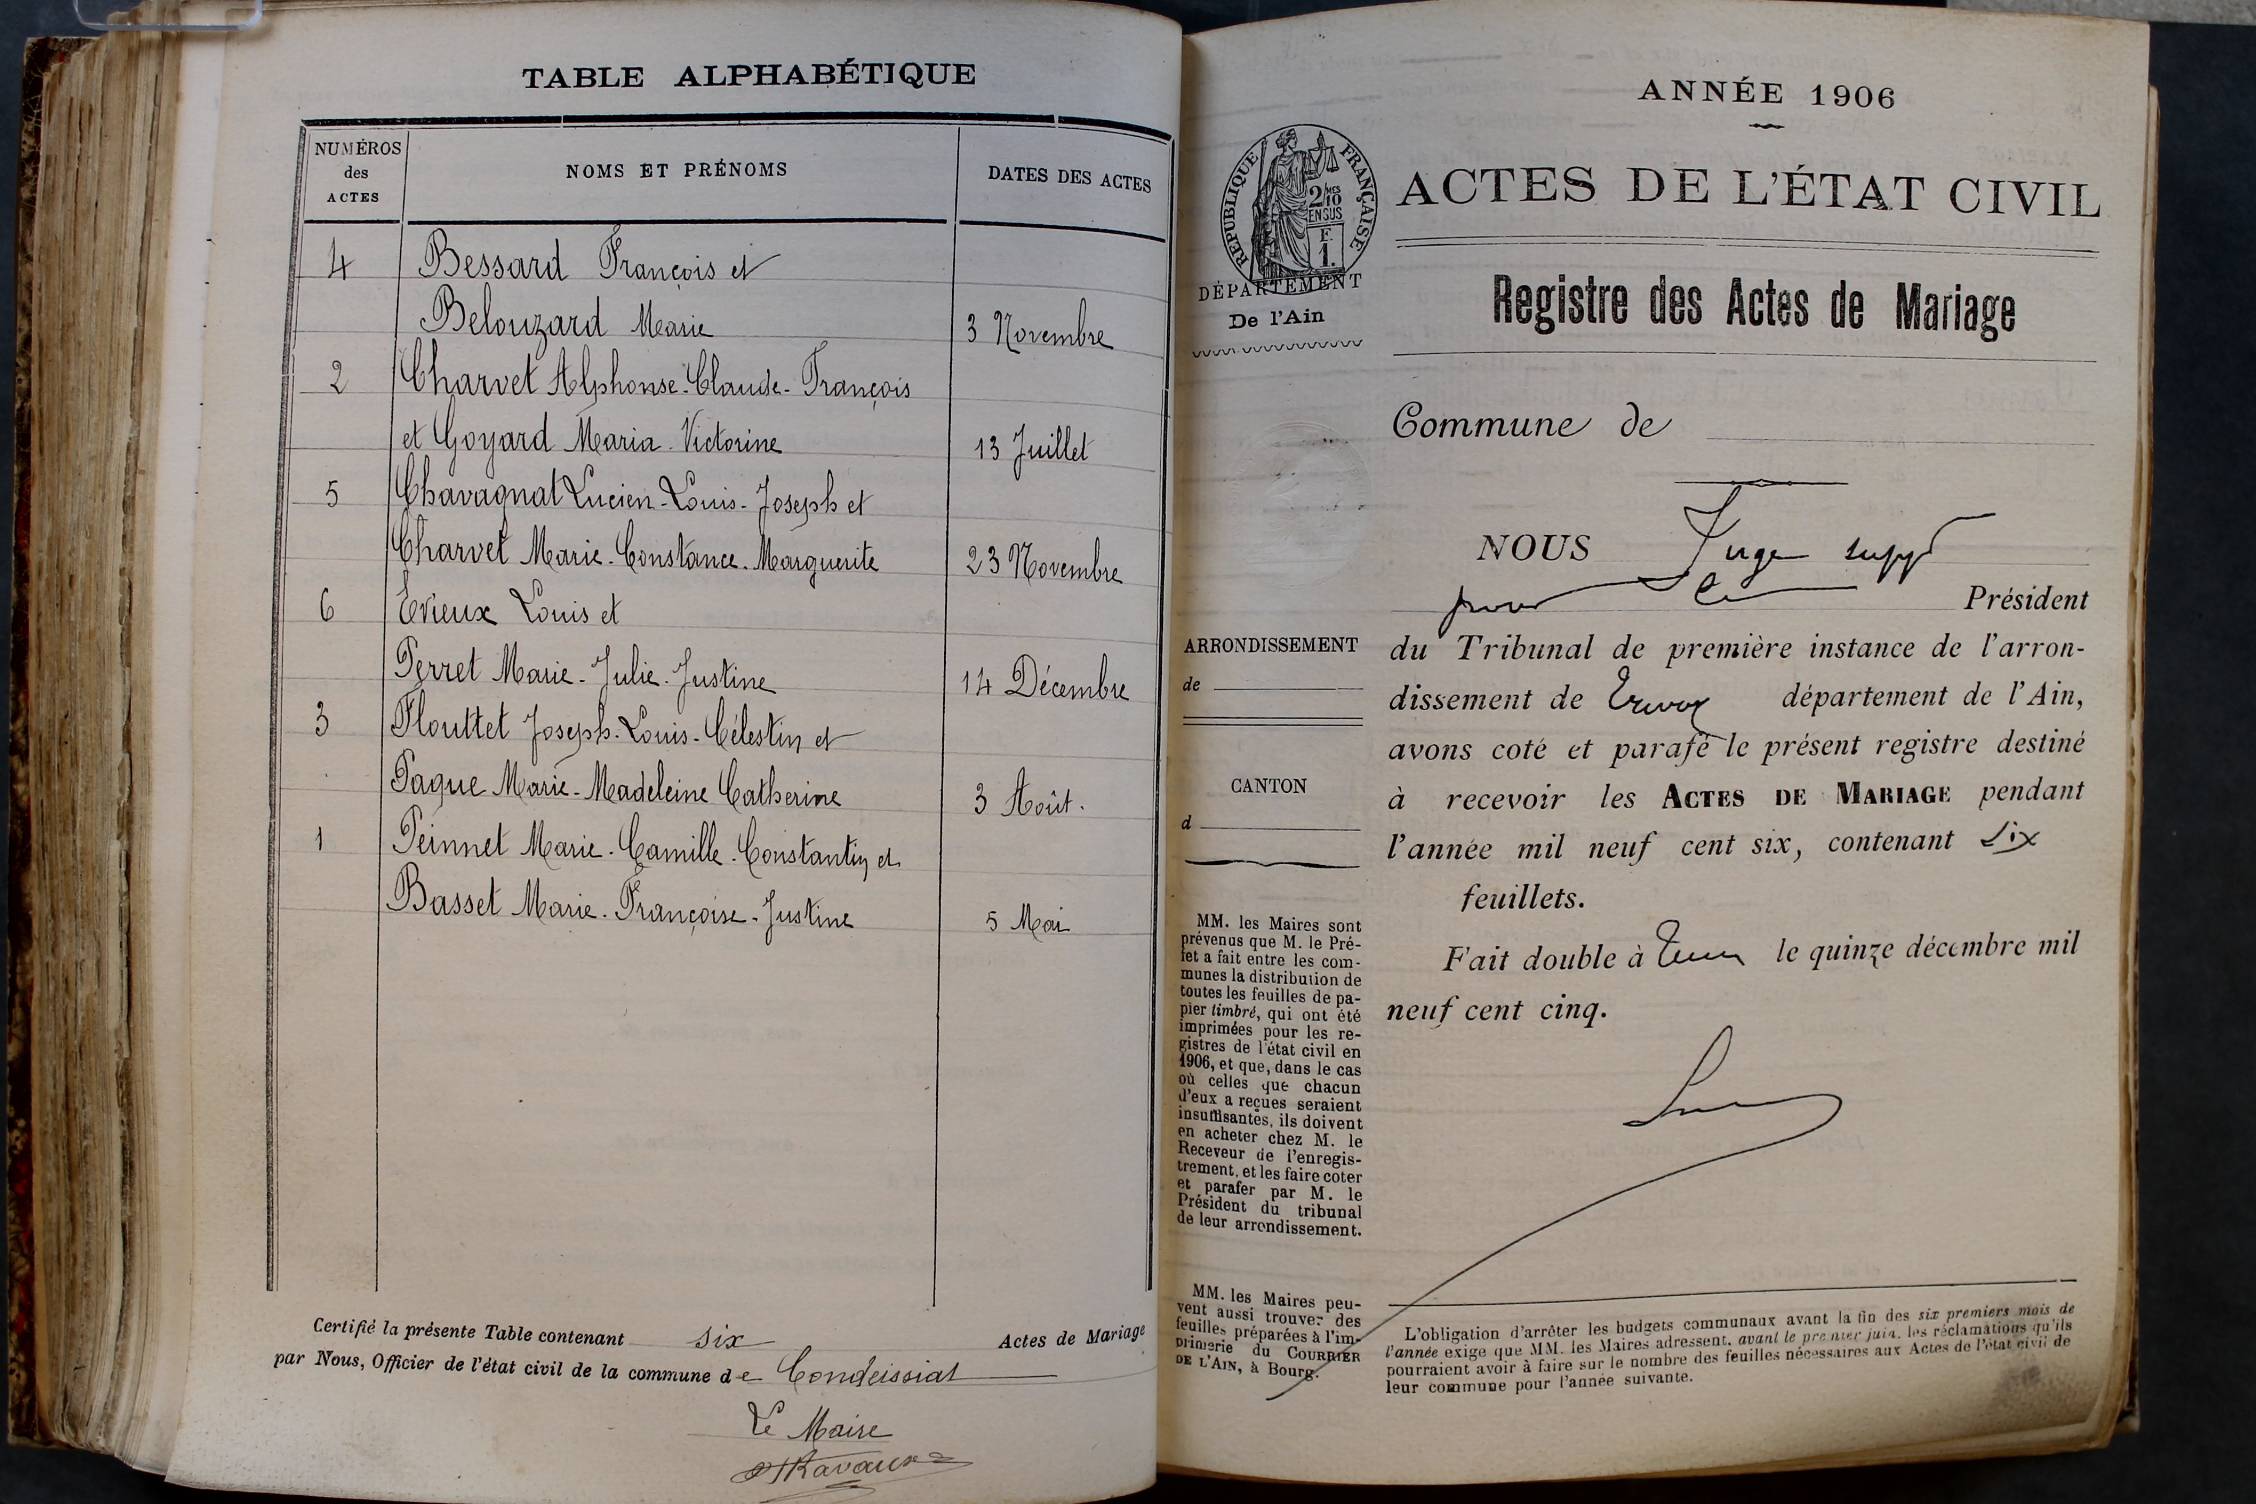 TABLE ALPHABÉTIQUE
NUMÉROS des ACTES
NOMS ET PRÉNOMS
DATES DES ACTES
4 Bessard François et
Belouzard Marie 3 Novembre
2 Charvet Alphonse-Claude-François
et Goyard Maria-Victorine 13 Juillet
5 Chavagnat Lucien-Louis-Joseph et
Charvet Marie-Constance-Marguerite 23 Novembre
6 Evieux Louis et
Perret Marie-Julie-Justine 14 Décembre
3 Flouttet Joseph-Louis-Célestin et
Paque Marie-Madeleine Catherine 3 Août.
1 Peinnet Marie-Camille-Constantin et
Basset Marie-Françoise-Justine 5 Mai
Certifié la présente Table contenant six Actes de Mariage
par Nous, Officier de l'état civil de la commune de Condeissiat
Le Maire
ANNÉE 1906
RÉPUBLIQUE FRANÇAISE
2/10 MES
EN SUS
F.
1.
DÉPARTEMENT
De l'Ain
ARRONDISSEMENT
de
CANTON
d
MM. les Maires sont
prévenus que M. le Pré-
fet a fait entre les com-
munes la distribution de
toutes les feuilles de pa-
pier timbré, qui ont été
imprimées pour les re-
gistres de l'état civil en
1906, et que, dans le cas
où celles que chacun
d'eux a reçues seraient
insuffisantes, ils doivent
en acheter chez M. le
Receveur de l'enregis-
trement, et les faire coter
et parafer par M. le
Président du tribunal
de leur arrondissement.
MM. les Maires peu-
vent aussi trouver des
feuilles préparées à l'im-
primerie du COURRIER
DE L'AIN, à Bourg.
ACTES DE L'ÉTAT CIVIL
Registre des Actes de Mariage
Commune de
NOUS Juge supp
pour le Président
du Tribunal de première instance de l'arron-
dissement de Trevoux département de l'Ain,
avons coté et parafé le présent registre destiné
à recevoir les ACTES DE MARIAGE pendant
l'année mil neuf cent six, contenant Six
feuillets.
Fait double à le quinze décembre mil
neuf cent cinq.
L'obligation d'arrêter les budgets communaux avant la fin des six premiers mois de
l'année exige que MM. les Maires adressent, avant le premier juin, les réclamations qu'ils
pourraient avoir à faire sur le nombre des feuilles nécessaires aux Actes de l'état civil de
leur commune pour l'année suivante.